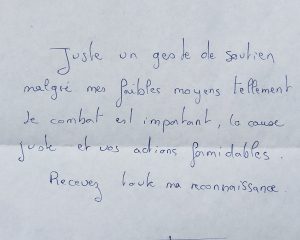 Juste un geste de soutien
malgré mes faibles moyens tellement
le combat est important, la cause
juste et vos actions formidables.
Recevez toute ma reconnaissance.